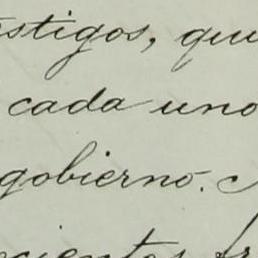 stigos, qui
cada uno
gobierno.
cientos fr